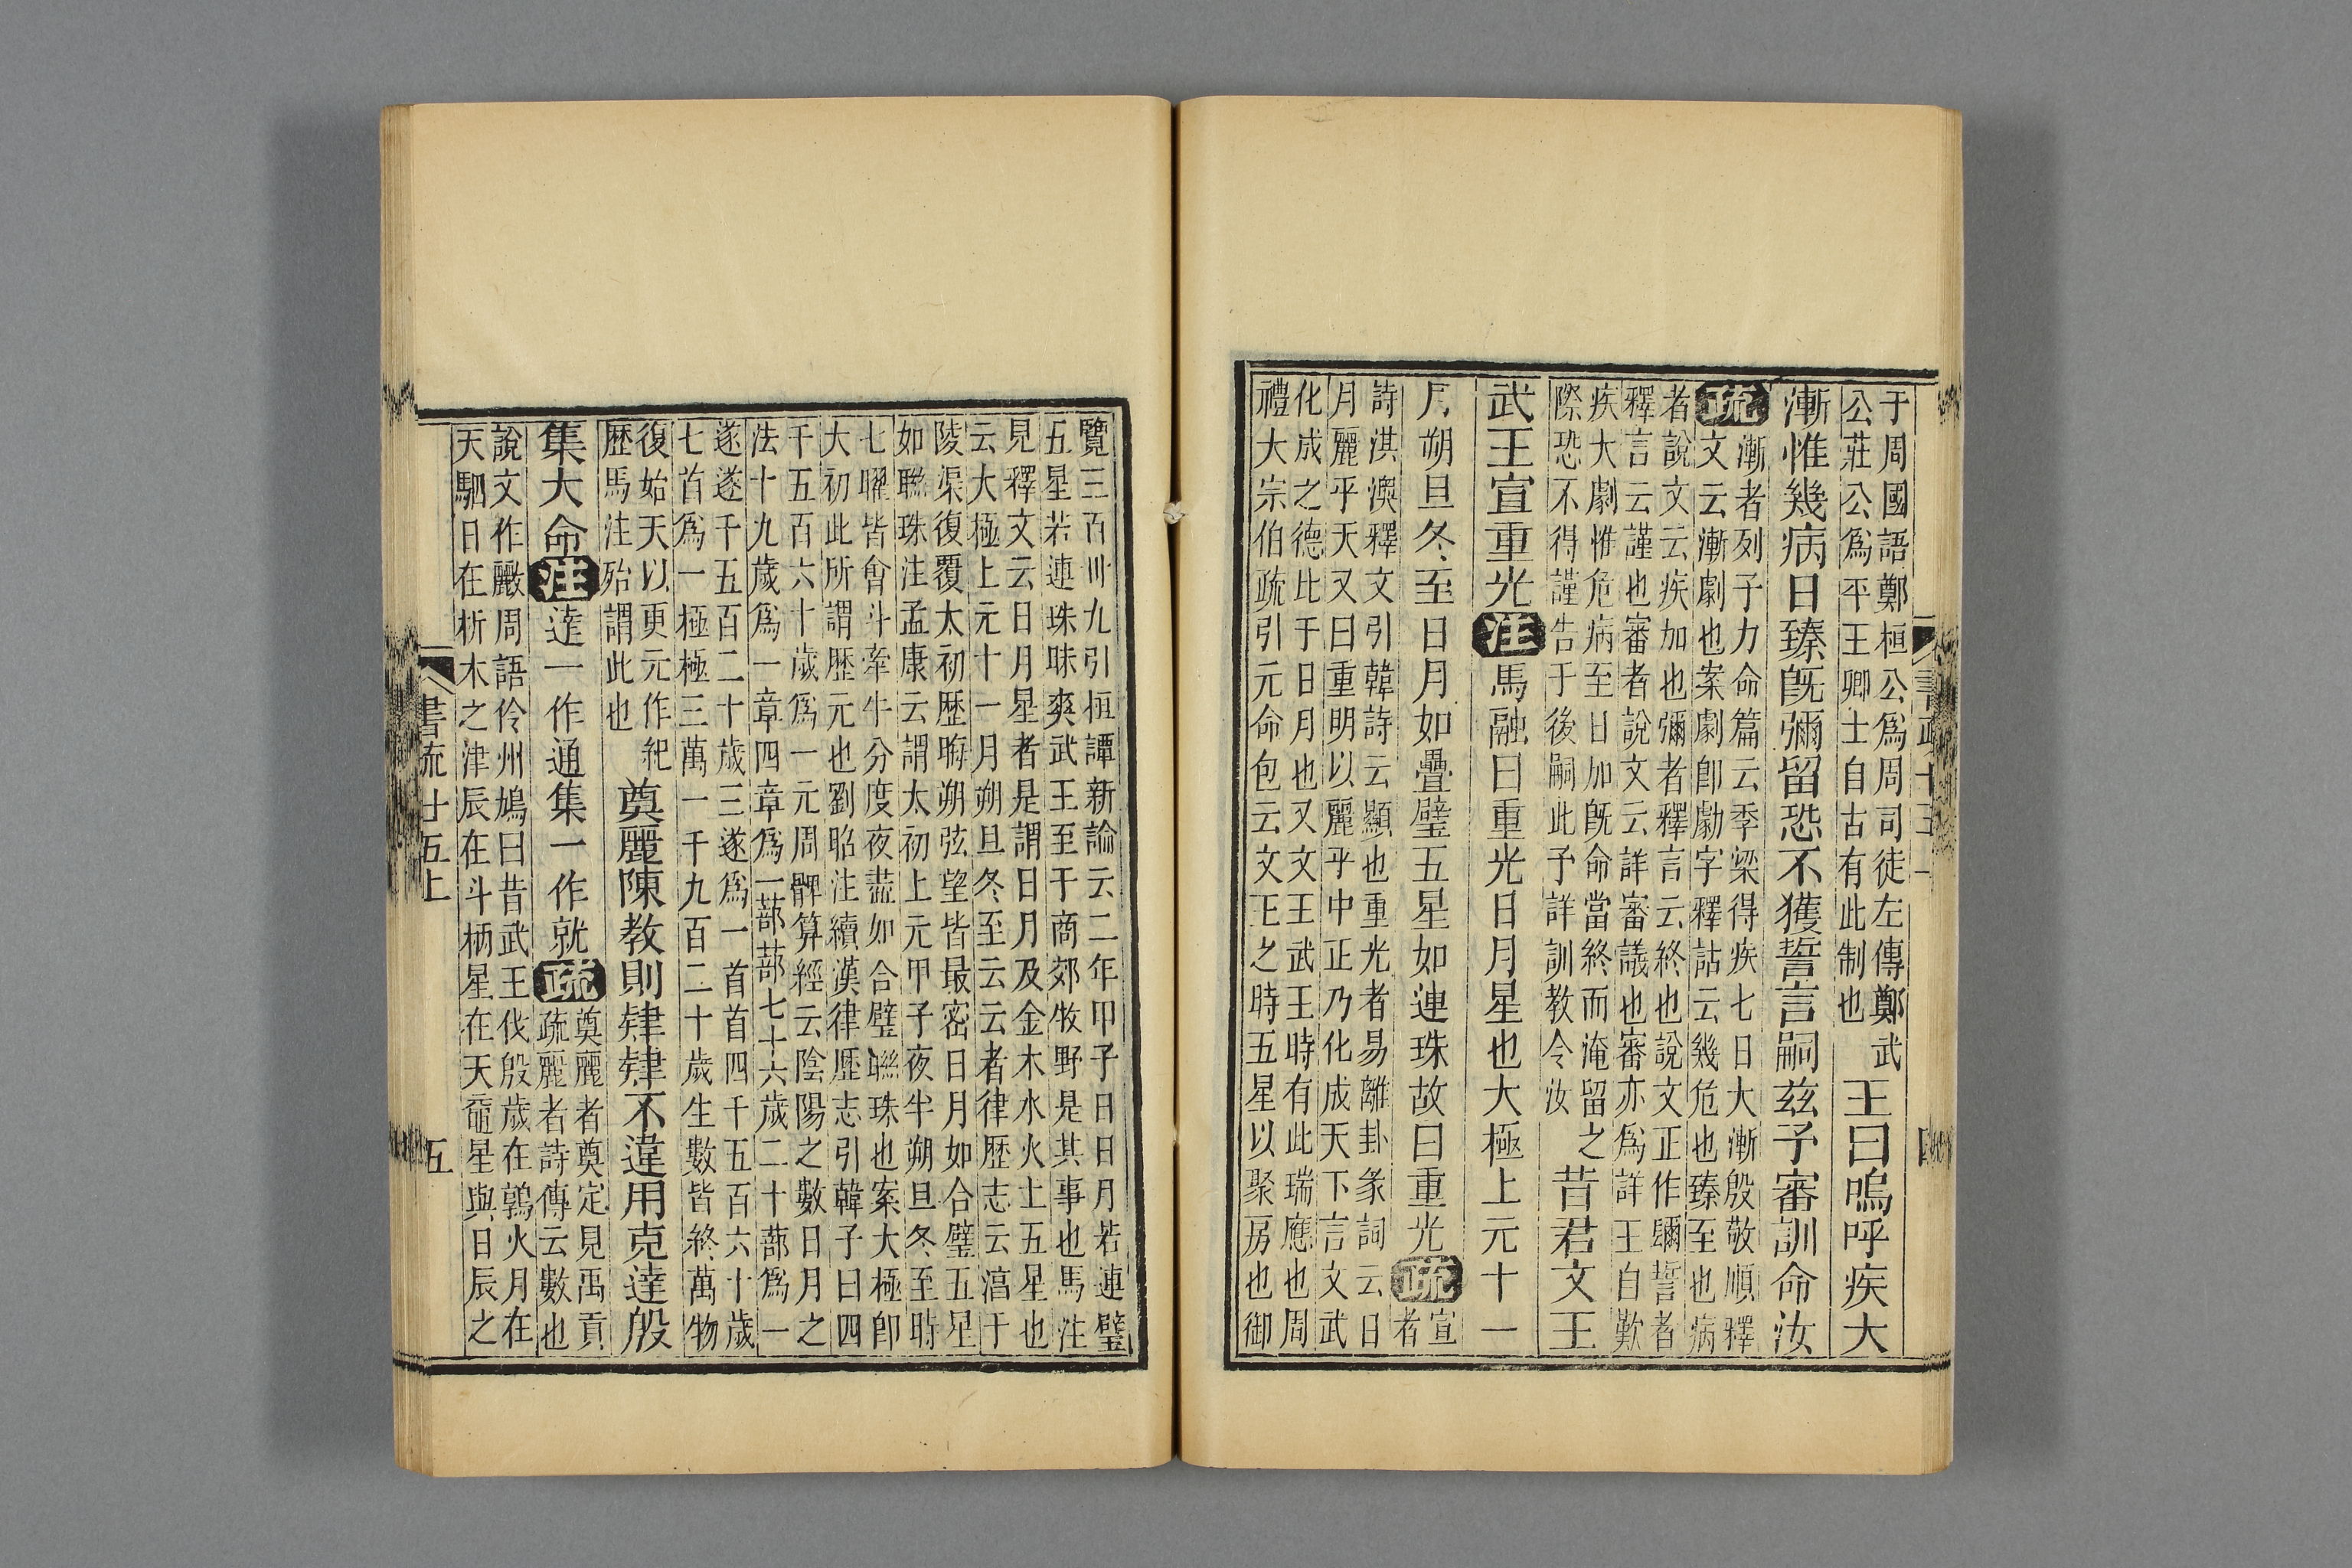 于周國語鄭桓公爲周司徒左傳鄭武
公莊公爲平王卿士自古有此制也
王曰嗚呼疾大
漸惟幾病日臻旣彌留恐不獲誓言嗣茲予審訓命汝
疏
漸者列子力命篇云季梁得疾七日大漸殷敬順釋
文云漸劇也案劇卽勮字釋詁云幾危也臻至也病
者說文云疾加也彌者釋言云終也說文正作镾誓者
釋言云謹也審者說文云詳審議也審亦爲詳王自歎
疾大劇惟危病至日加旣命當終而淹留之
際恐不得謹告于後嗣此予詳訓教令汝
昔君文王
武王宣重光
注
馬融曰重光日月星也大極上元十一
月朔旦冬至日月如疊璧五星如連珠故曰重光
疏
宣
者
詩淇澳釋文引韓詩云顯也重光者易離卦彖詞云日
月麗乎天又曰重明以麗乎中正乃化成天下言文武
化成之德比于日月也又文王武王時有此瑞應也周
禮大宗伯疏引元命包云文王之時五星以聚房也御
覽三百卅九引桓譚新論云二年甲子日日月若連璧
五星若連珠昧爽武王至于商郊牧野是其事也馬注
見釋文云日月星者是謂日月及金木水火土五星也
云大極上元十一月朔旦冬至云云者律歷志云湻于
陵渠復覆太初歷晦朔弦望皆最密日月如合璧五星
如聯珠注孟康云謂太初上元甲子夜半朔旦冬至時
七曜皆會斗牽牛分度夜盡如合璧聯珠也案大極卽
大初此所謂歷元也劉昭注續漢律歷志引韓子曰四
千五百六十歲爲一元周髀算經云陰陽之數日月之
法十九歲爲一章四章爲一蔀蔀七十六歲二十蔀爲一
遂遂千五百二十歲三遂爲一首首四千五百六十歲
七首爲一極極三萬一千九百二十歲生數皆終萬物
復始天以更元作紀
歷馬注殆謂此也
奠麗陳教則肄肄不違用克達殷
集大命
注
達一作通集一作就
疏
奠麗者奠定見禹貢
疏麗者詩傳云數也
說文作𪋛周語伶州鳩曰昔武王伐殷歲在鶉火月在
天駟日在析木之津辰在斗柄星在天黿星與日辰之
書疏廿五上
五